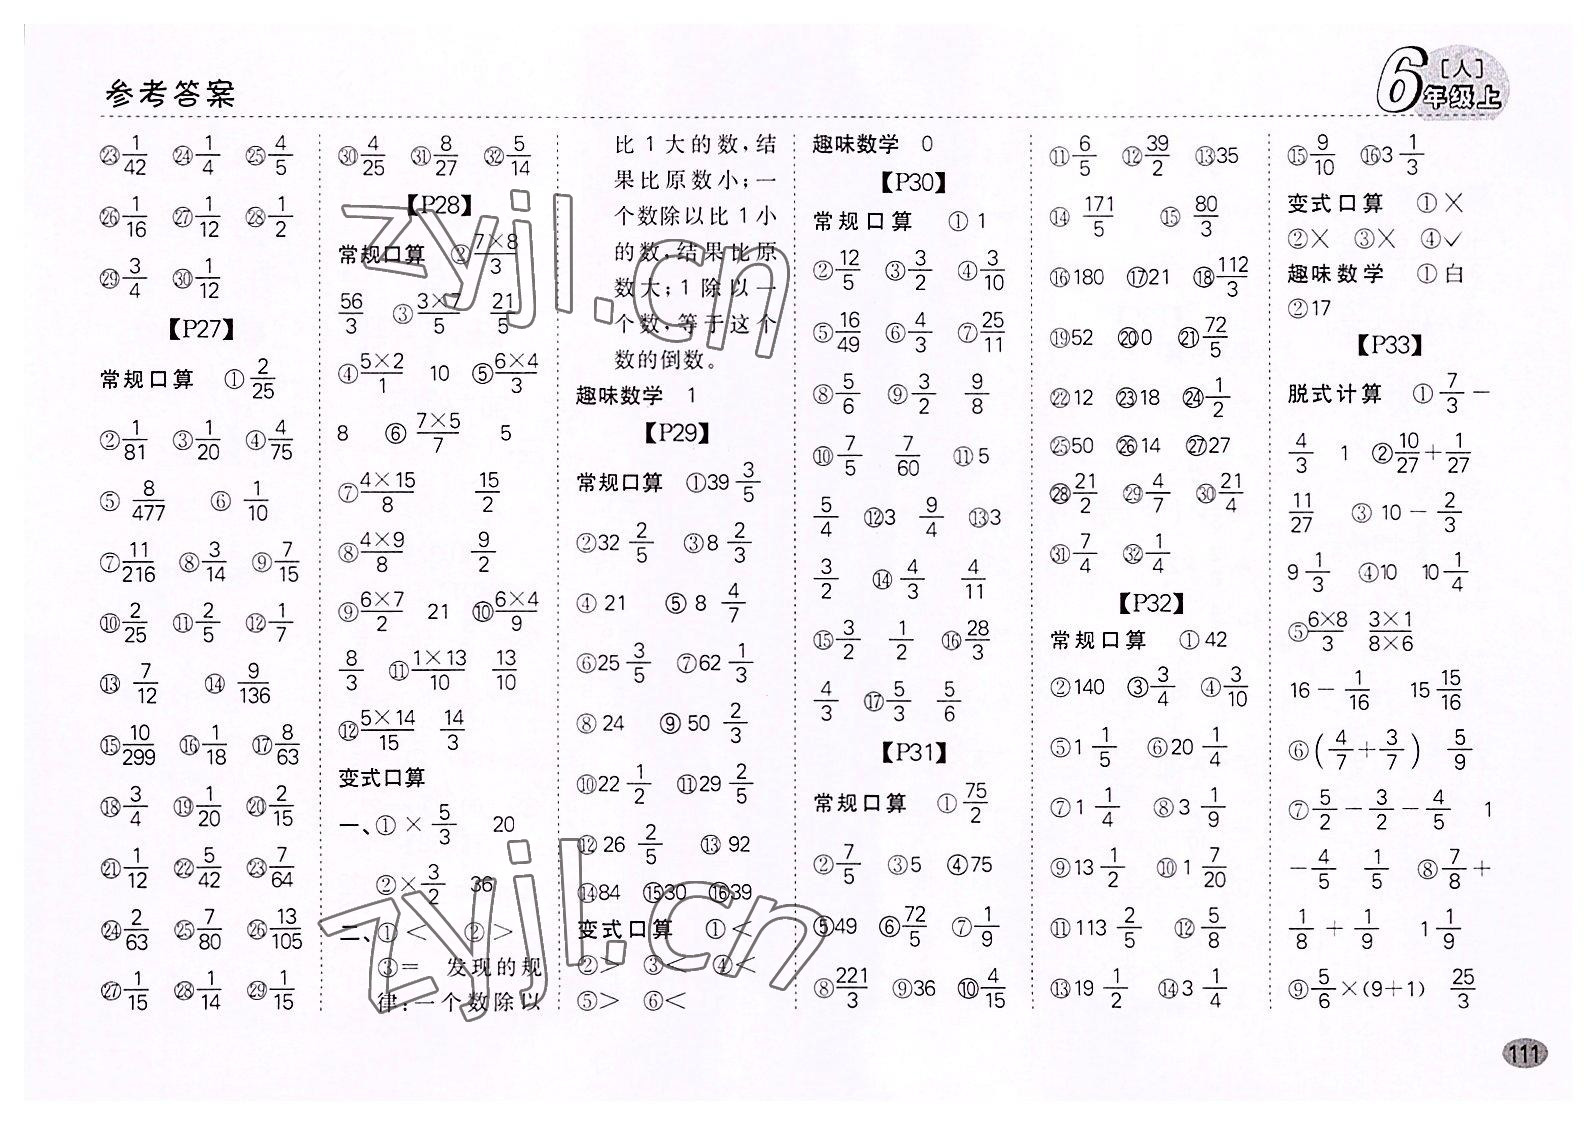 参考答案
6 [人] 年级上
㉓1/42 ㉔1/4 ㉕4/5
㉖1/16 ㉗1/12 ㉘1/2
㉙3/4 ㉚1/12
【P27】
常规口算 ①2/25
②1/81 ③1/20 ④4/75
⑤8/477 ⑥1/10
⑦11/216 ⑧3/14 ⑨7/15
⑩2/25 ⑪2/5 ⑫1/7
⑬7/12 ⑭9/136
⑮10/299 ⑯1/18 ⑰8/63
⑱3/4 ⑲1/20 ⑳2/15
㉑1/12 ㉒5/42 ㉓7/64
㉔2/63 ㉕7/80 ㉖13/105
㉗1/15 ㉘1/14 ㉙1/15
㉚4/25 ㉛8/27 ㉜5/14
【P28】
常规口算 ②7×8/3
56/3 ③3×7/5 21/5
④5×2/1 10 ⑤6×4/3
8 ⑥7×5/7 5
⑦4×15/8 15/2
⑧4×9/8 9/2
⑨6×7/2 21 ⑩6×4/9
8/3 ⑪1×13/10 13/10
⑫5×14/15 14/3
变式口算
一、①×5/3 20
②×3/2 36
二、①< ②>
③= 发现的规
律:一个数除以
比1大的数,结
果比原数小;一
个数除以比1小
的数,结果比原
数大;1除以一
个数,等于这个
数的倒数。
趣味数学 1
【P29】
常规口算 ①39 3/5
②32 2/5 ③8 2/3
④21 ⑤8 4/7
⑥25 3/5 ⑦62 1/3
⑧24 ⑨50 2/3
⑩22 1/2 ⑪29 2/5
⑫26 2/5 ⑬92
⑭84 ⑮30 ⑯39
变式口算 ①<
②> ③< ④<
⑤> ⑥<
趣味数学 0
【P30】
常规口算 ①1
②12/5 ③3/2 ④3/10
⑤16/49 ⑥4/3 ⑦25/11
⑧5/6 ⑨3/2 9/8
⑩7/5 7/60 ⑪5
5/4 ⑫3 9/4 ⑬3
3/2 ⑭4/3 4/11
⑮3/2 1/2 ⑯28/3
4/3 ⑰5/3 5/6
【P31】
常规口算 ①75/2
②7/5 ③5 ④75
⑤49 ⑥72/5 ⑦1/9
⑧221/3 ⑨36 ⑩4/15
⑪6/5 ⑫39/2 ⑬35
⑭171/5 ⑮80/3
⑯180 ⑰21 ⑱112/3
⑲52 ⑳0 ㉑72/5
㉒12 ㉓18 ㉔1/2
㉕50 ㉖14 ㉗27
㉘21/2 ㉙4/7 ㉚21/4
㉛7/4 ㉜1/4
【P32】
常规口算 ①42
②140 ③3/4 ④3/10
⑤1 1/5 ⑥20 1/4
⑦1 1/4 ⑧3 1/9
⑨13 1/2 ⑩1 7/20
⑪113 2/5 ⑫5/8
⑬19 1/2 ⑭3 1/4
⑮9/10 ⑯3 1/3
变式口算 ①×
②× ③× ④✓
趣味数学 ①白
②17
【P33】
脱式计算 ①7/3－
4/3 1 ②10/27＋1/27
11/27 ③10－2/3
9 1/3 ④10 10 1/4
⑤6×8/3 3×1/8×6
16－1/16 15 15/16
⑥(4/7＋3/7) 5/9
⑦5/2－3/2－4/5 1
－4/5 1/5 ⑧7/8＋
1/8＋1/9 1 1/9
⑨5/6×(9+1) 25/3
111
zyjl.cn
zyjl.cn